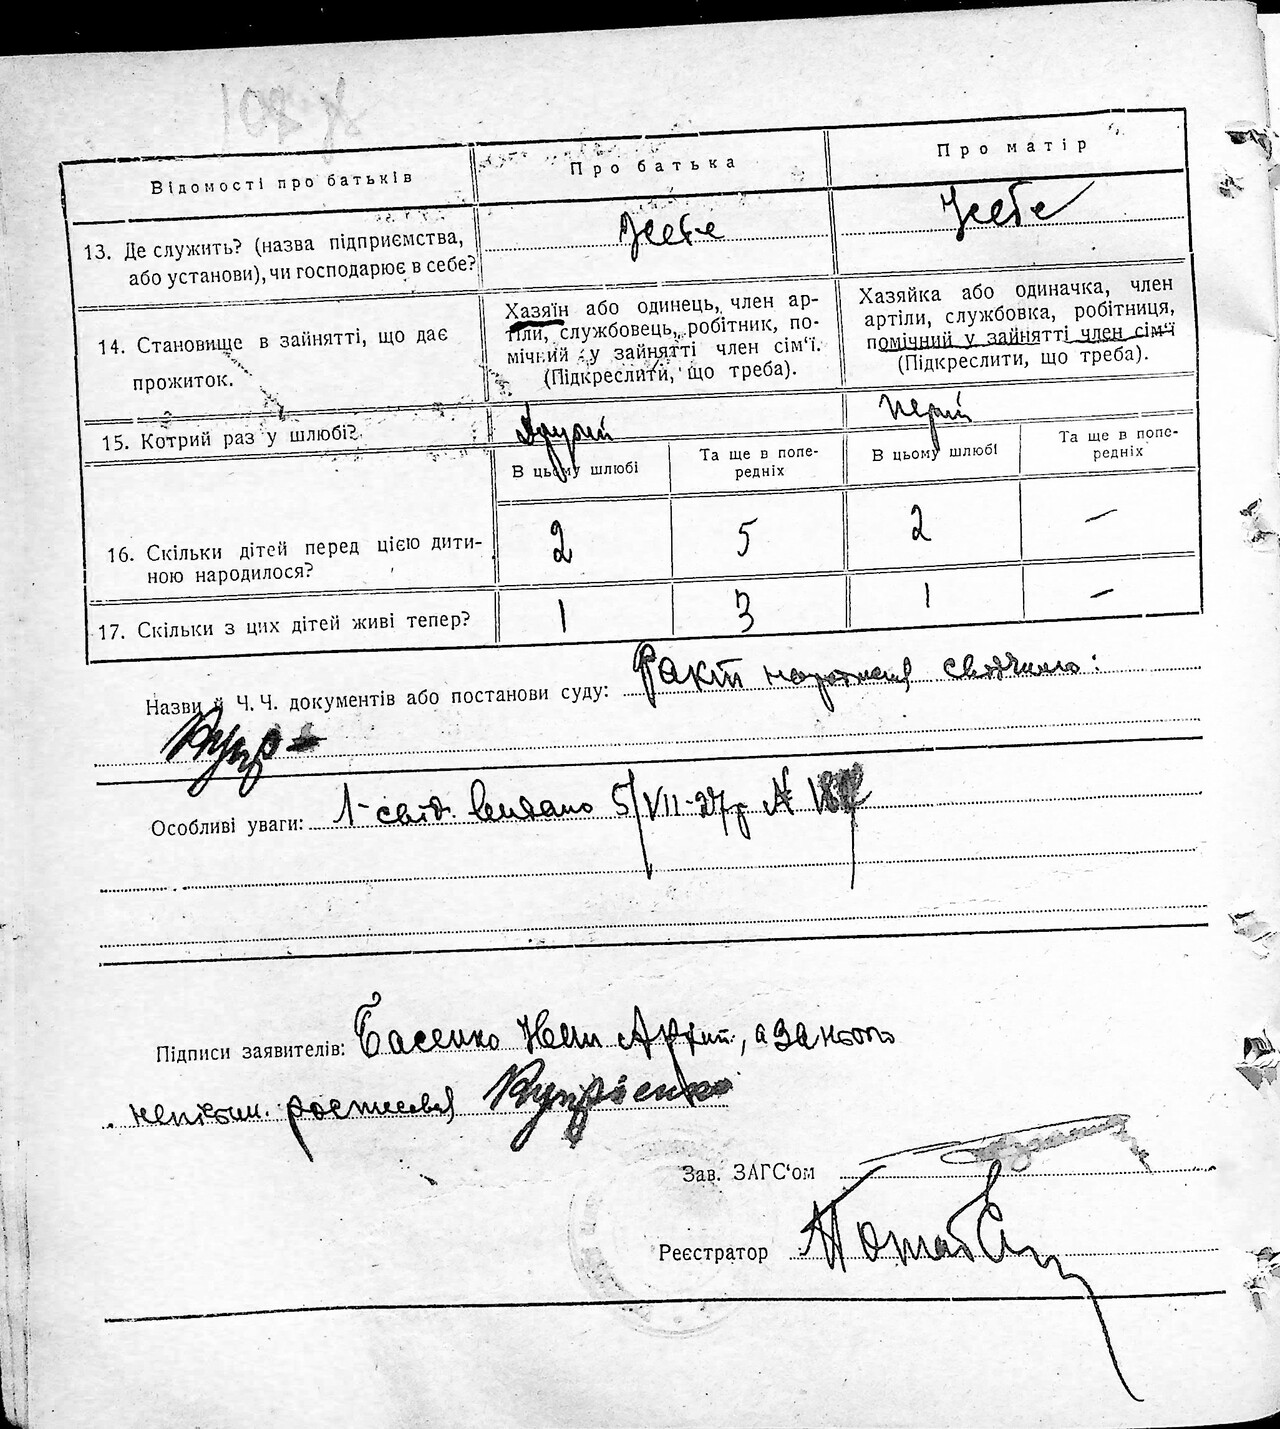 Відомості про батьків
Про батька
Про матір
13. Де служить? (назва підприємства, або установи), чи господарює в себе?
У себе
У себе
14. Становище в зайнятті, що дає прожиток.
Хазяїн або одинець, член артіли, службовець, робітник, помічний у зайнятті член сім'ї.
(Підкреслити, що треба).
Хазяйка або одиначка, член артіли, службовка, робітниця, помічний у зайнятті член сім'ї
(Підкреслити, що треба).
15. Котрий раз у шлюбі?
Другий
перший
В цьому шлюбі
Та ще в попередніх
В цьому шлюбі
Та ще в попередніх
16. Скільки дітей перед цією дитиною народилося?
2
5
2
—
17. Скільки з цих дітей живі тепер?
1
3
1
—
Назви й Ч.Ч. документів або постанови суду: Факт
Особливі уваги: 1-свід. видано 5/VII-27р №
Підписи заявителів: Басенко а за нього
неписьм. росписався
Зав. ЗАГС'ом
Реєстратор